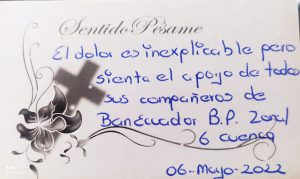 Sentido Pésame
El dolor es inexplicable pero
sienta el apoyo de todos
sus compañeros de
BanEcuador B.P. Zonal
6 cuenca
06-Mayo-2022